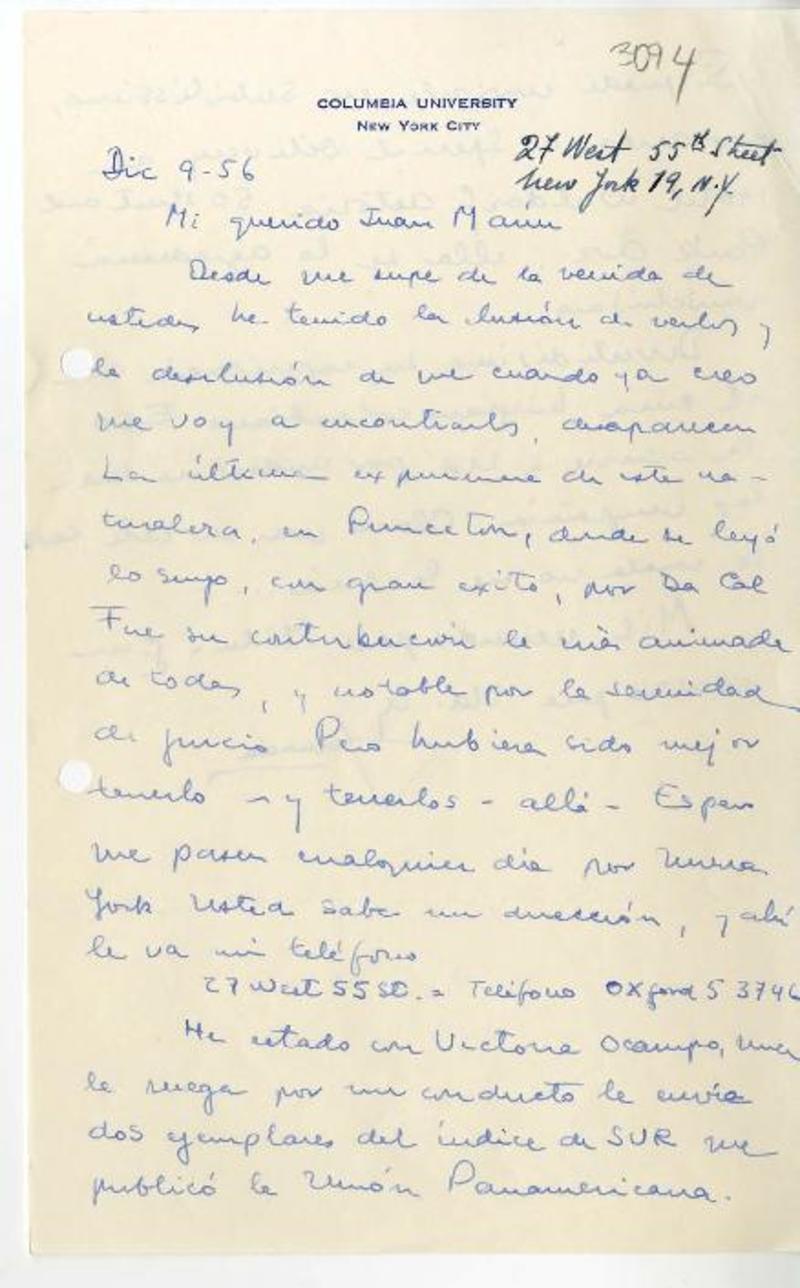 3094
COLUMBIA UNIVERSITY
NEW YORK CITY
27 West 55th Street
New York 19, N.Y.
Dic 9-56
Mi querido Juan Marín
Desde que supe de la venida de
ustedes he tenido la ilusión de verlos y
la desilusión de que cuando ya creo
que voy a encontrarlos, desaparecen
La última experiencia de esta na-
turaleza, en Princeton, donde se leyó
lo suyo, con gran exito, por Da Cal
Fue su contribución la más animada
de todas, y notable por la serenidad
de juicio Pero hubiera sido mejor
tenerlo - y tenerlos - allá - Espero
que pasen cualquier día por Nueva
York Usted sabe mi dirección, y ahí
le va mi teléfono
27 West 55 St. = Teléfono OXford 5 3746
He estado con Victoria Ocampo, quien
le ruega por mi conducto le envíe
dos ejemplares del índice de SUR que
publicó la Unión Panamericana.